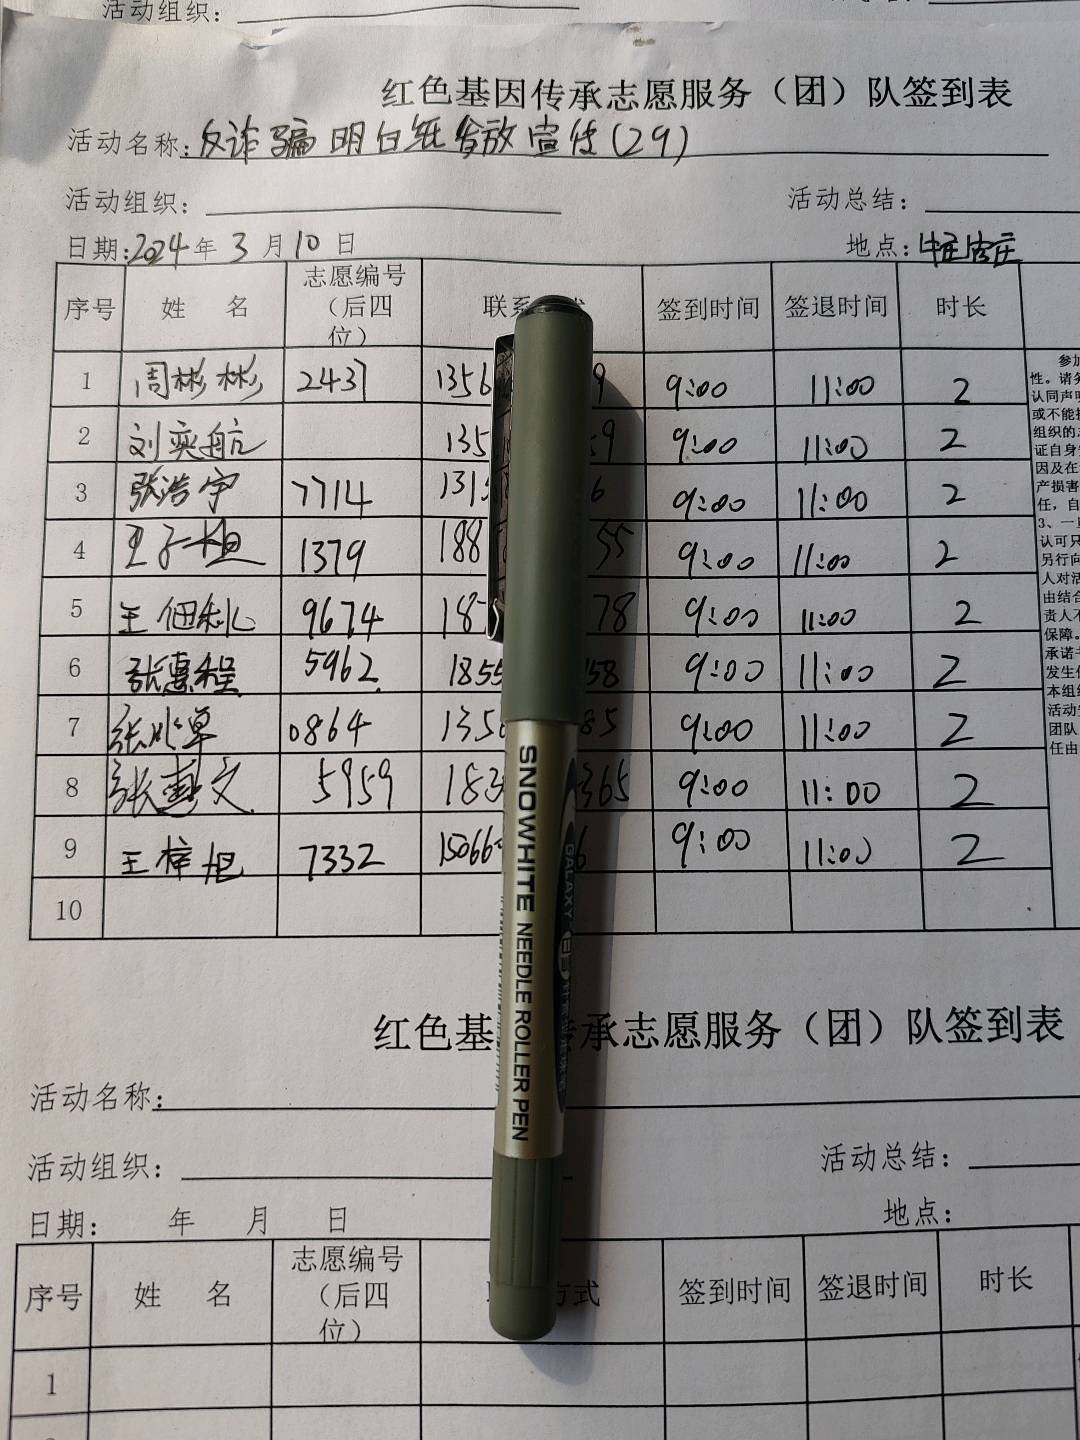 活动组织：
红色基因传承志愿服务（团）队签到表
活动名称：反诈骗明白纸发放宣传(29)
活动组织： 活动总结：
日期:2024年3月10日 地点：
序号 姓 名 志愿编号（后四位） 联系 式 签到时间 签退时间 时长
1 周彬彬 2437 1356 9 9:00 11:00 2
2 刘奕航 135 59 9:00 11:00 2
3 张浩宇 7714 131 6 9:00 11:00 2
4 王子 1379 188 55 9:00 11:00 2
5 王佃 9674 18 78 9:00 11:00 2
6 张惠程 5962 1855 58 9:00 11:00 2
7 张 0864 135 85 9:00 11:00 2
8 张 文 5959 183 365 9:00 11:00 2
9 王梓旭 7332 15066 6 9:00 11:00 2
10
参加
性。请务
认同声明
或不能
组织的
证自身
因及在
产损害
任，自
3、一
认可只
另行向
人对活
由结合
责人不
保障。
承诺书
发生
本组织
活动
团队
任由
SNOWHITE NEEDLE ROLLER PEN
GALAXY
红色基 传承志愿服务（团）队签到表
活动名称：
活动组织： 活动总结：
日期： 年 月 日 地点：
序号 姓 名 志愿编号（后四位） 方式 签到时间 签退时间 时长
1